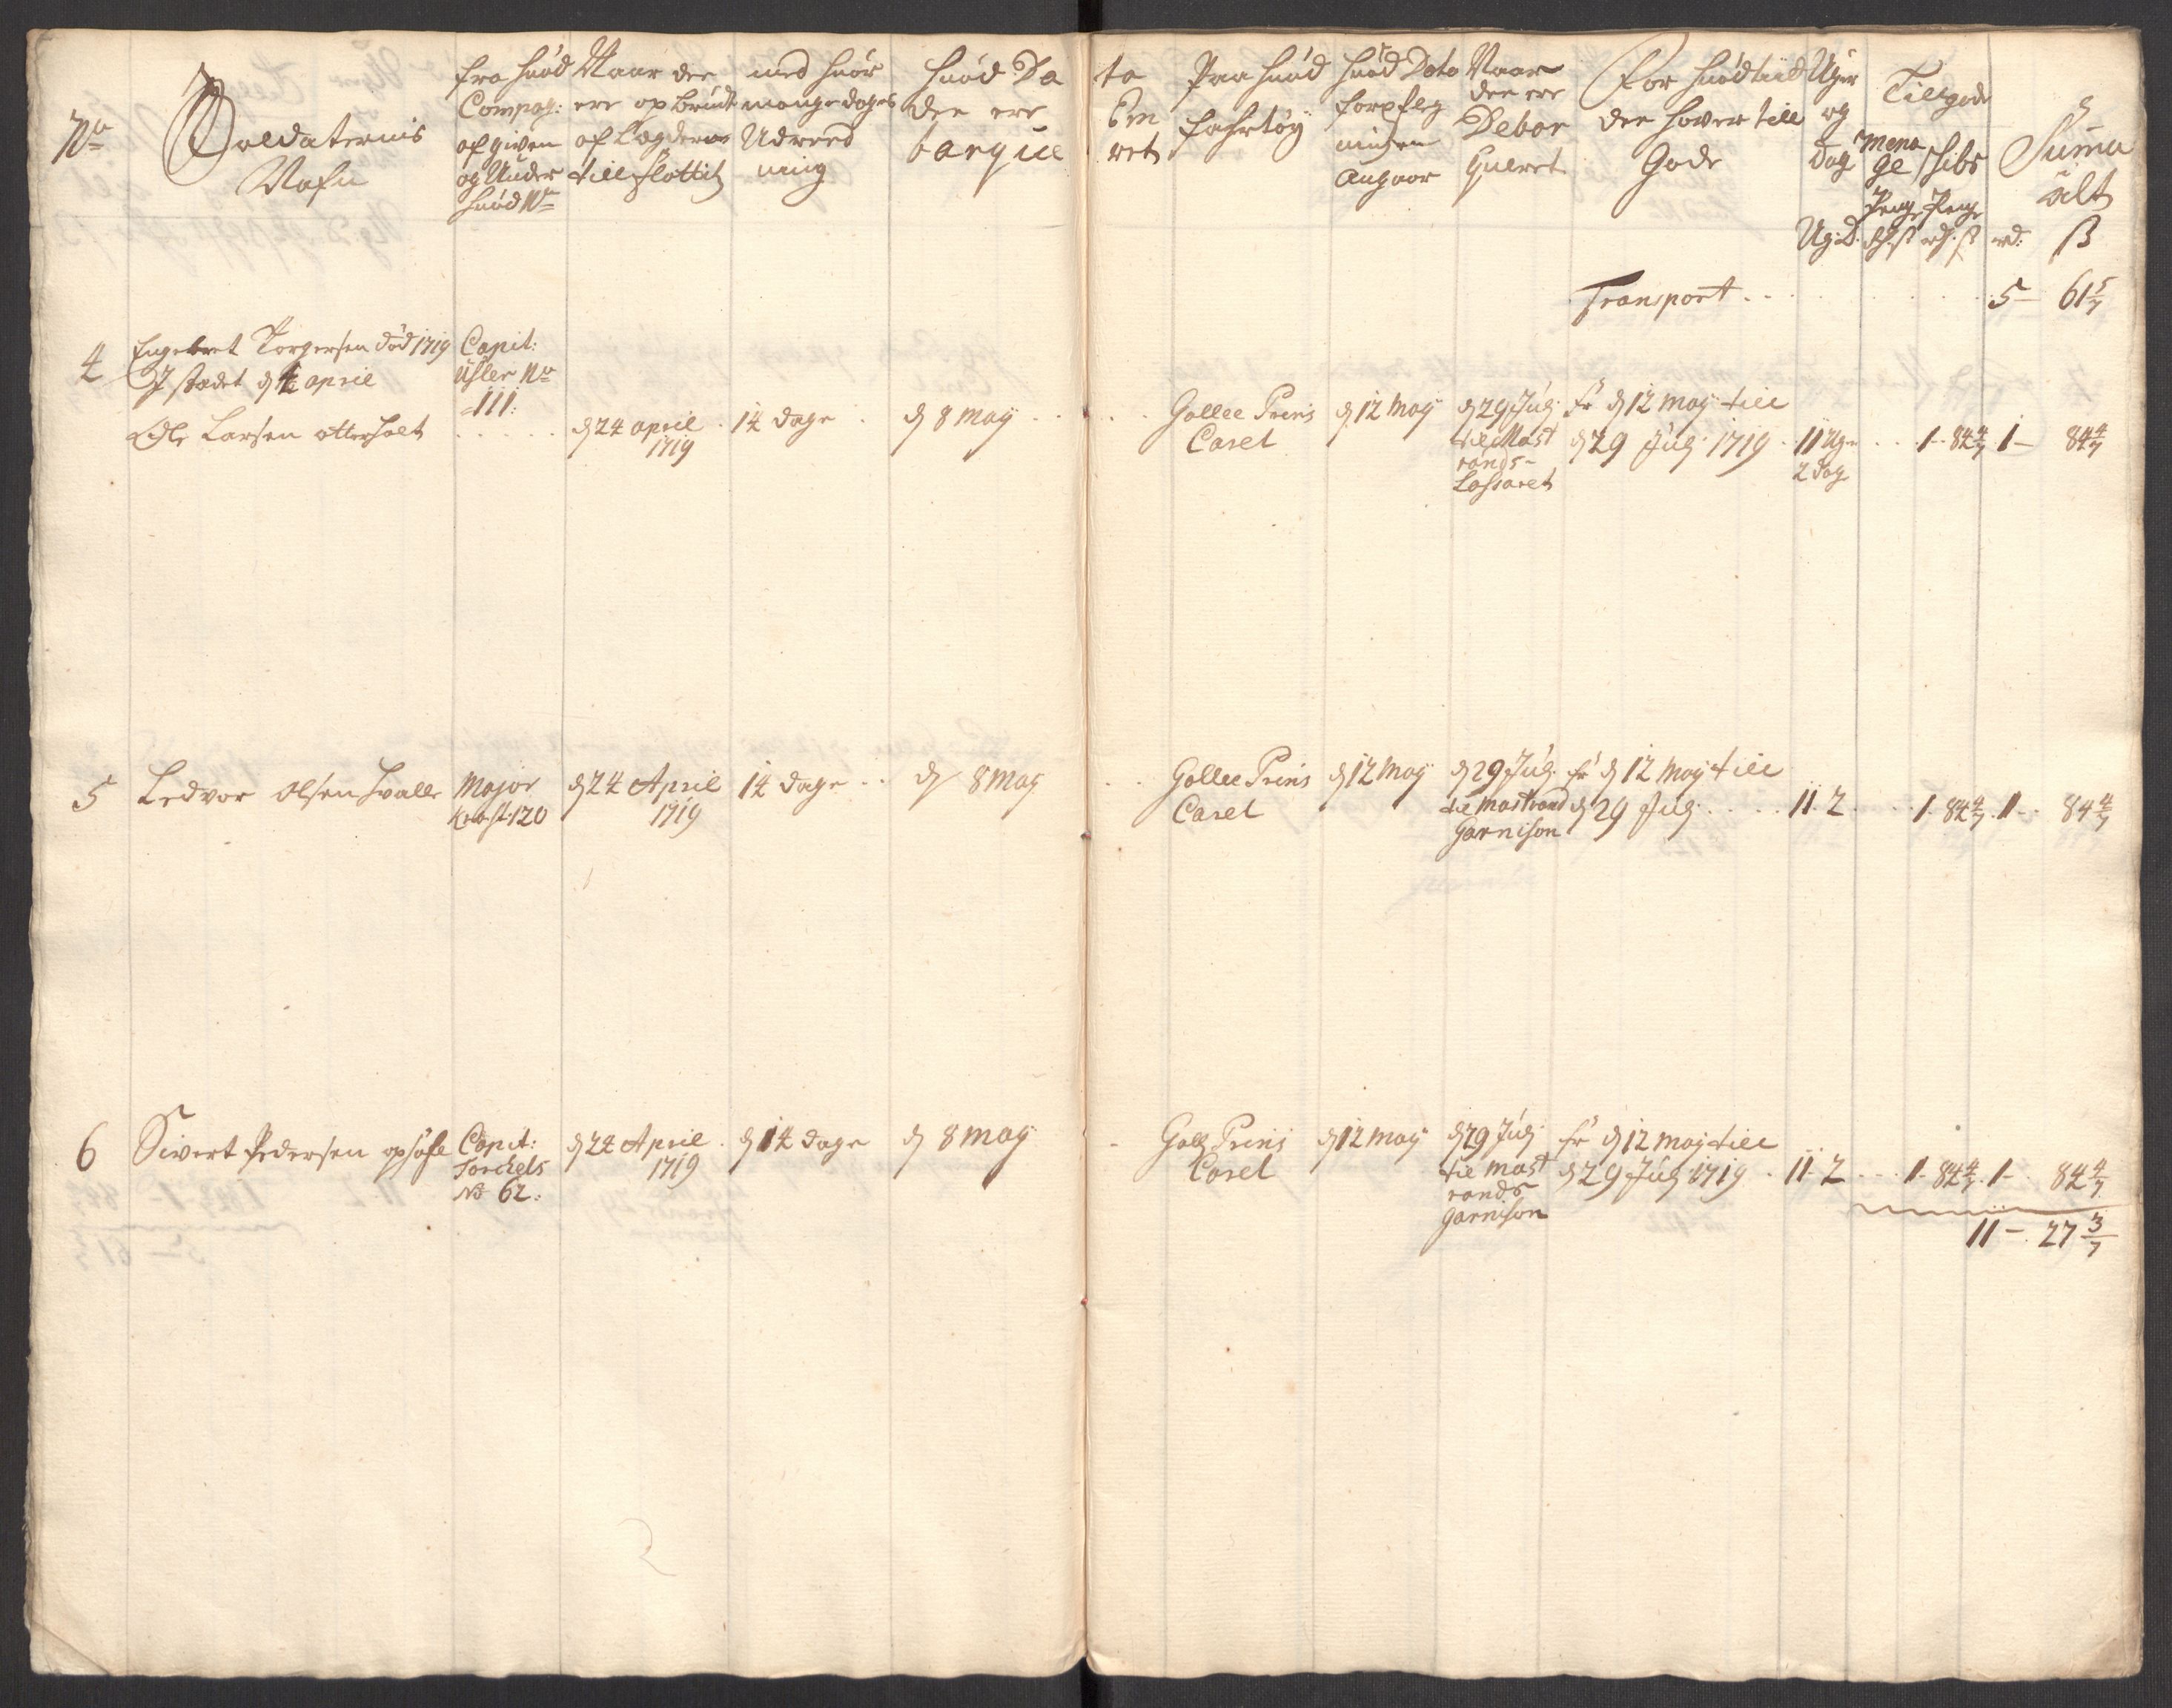 No
Soldaternis
Nafn
fra huad
Compag:
afgiven
og Under
huad No
Naar der
ere opbrudt
af Lagderne
till flottit
med huor
mange dages
Udreed
ning
huad Da
der ere
barque
to
Em
ret
Paa huad
fahrtøy
huad Dato
forpfleg
ningen
Angaar
Naar
der ere
Debar
queret
For huad tiid
der hover till
Gode
Uger
og
Dag
Ug: D.
Tillgode
Mena
ge
Penge
rd: ß
schibs
Penge
rd: ß
Suma
alt
rd: ß
Transport . . . 5 – 61 5/7
4
Engebret Torgersen død 1719
I stædet d 4 april
Ole Larsen otterholt
Capit:
Üsler No
111:
d 24 april
1719
14 dage
d 8 may
Gallee Prins
Carel
d 12 may
d 29 July
til Mast
rands-
Lassaret
fr d 12 may till
d 29 July 1719
11 Uge
2 dag
1 - 84 4/7 1 – 84 4/7
5
Ledvor Olsen hvalle
Major
120
d 24 April
1719
14 dage
d 8 may
Gallee Prins
Carel
d 12 may
d 29 July
til mastrand
garnison
fr d 12 may till
d 29 July
11 - 2
1 - 84 4/7 1 – 84 4/7
6
Sivert Pedersen opsahle
Capit:
Torchels
No 62:
d 24 April
1719
d 14 dage
d 8 may
Galle Prins
Carel
d 12 may
d 29 July
til mast
rands
garnison
fr d 12 may till
d 29 July 1719
11 - 2
1 - 84 4/7 1 – 84 4/7
11 – 27 3/7